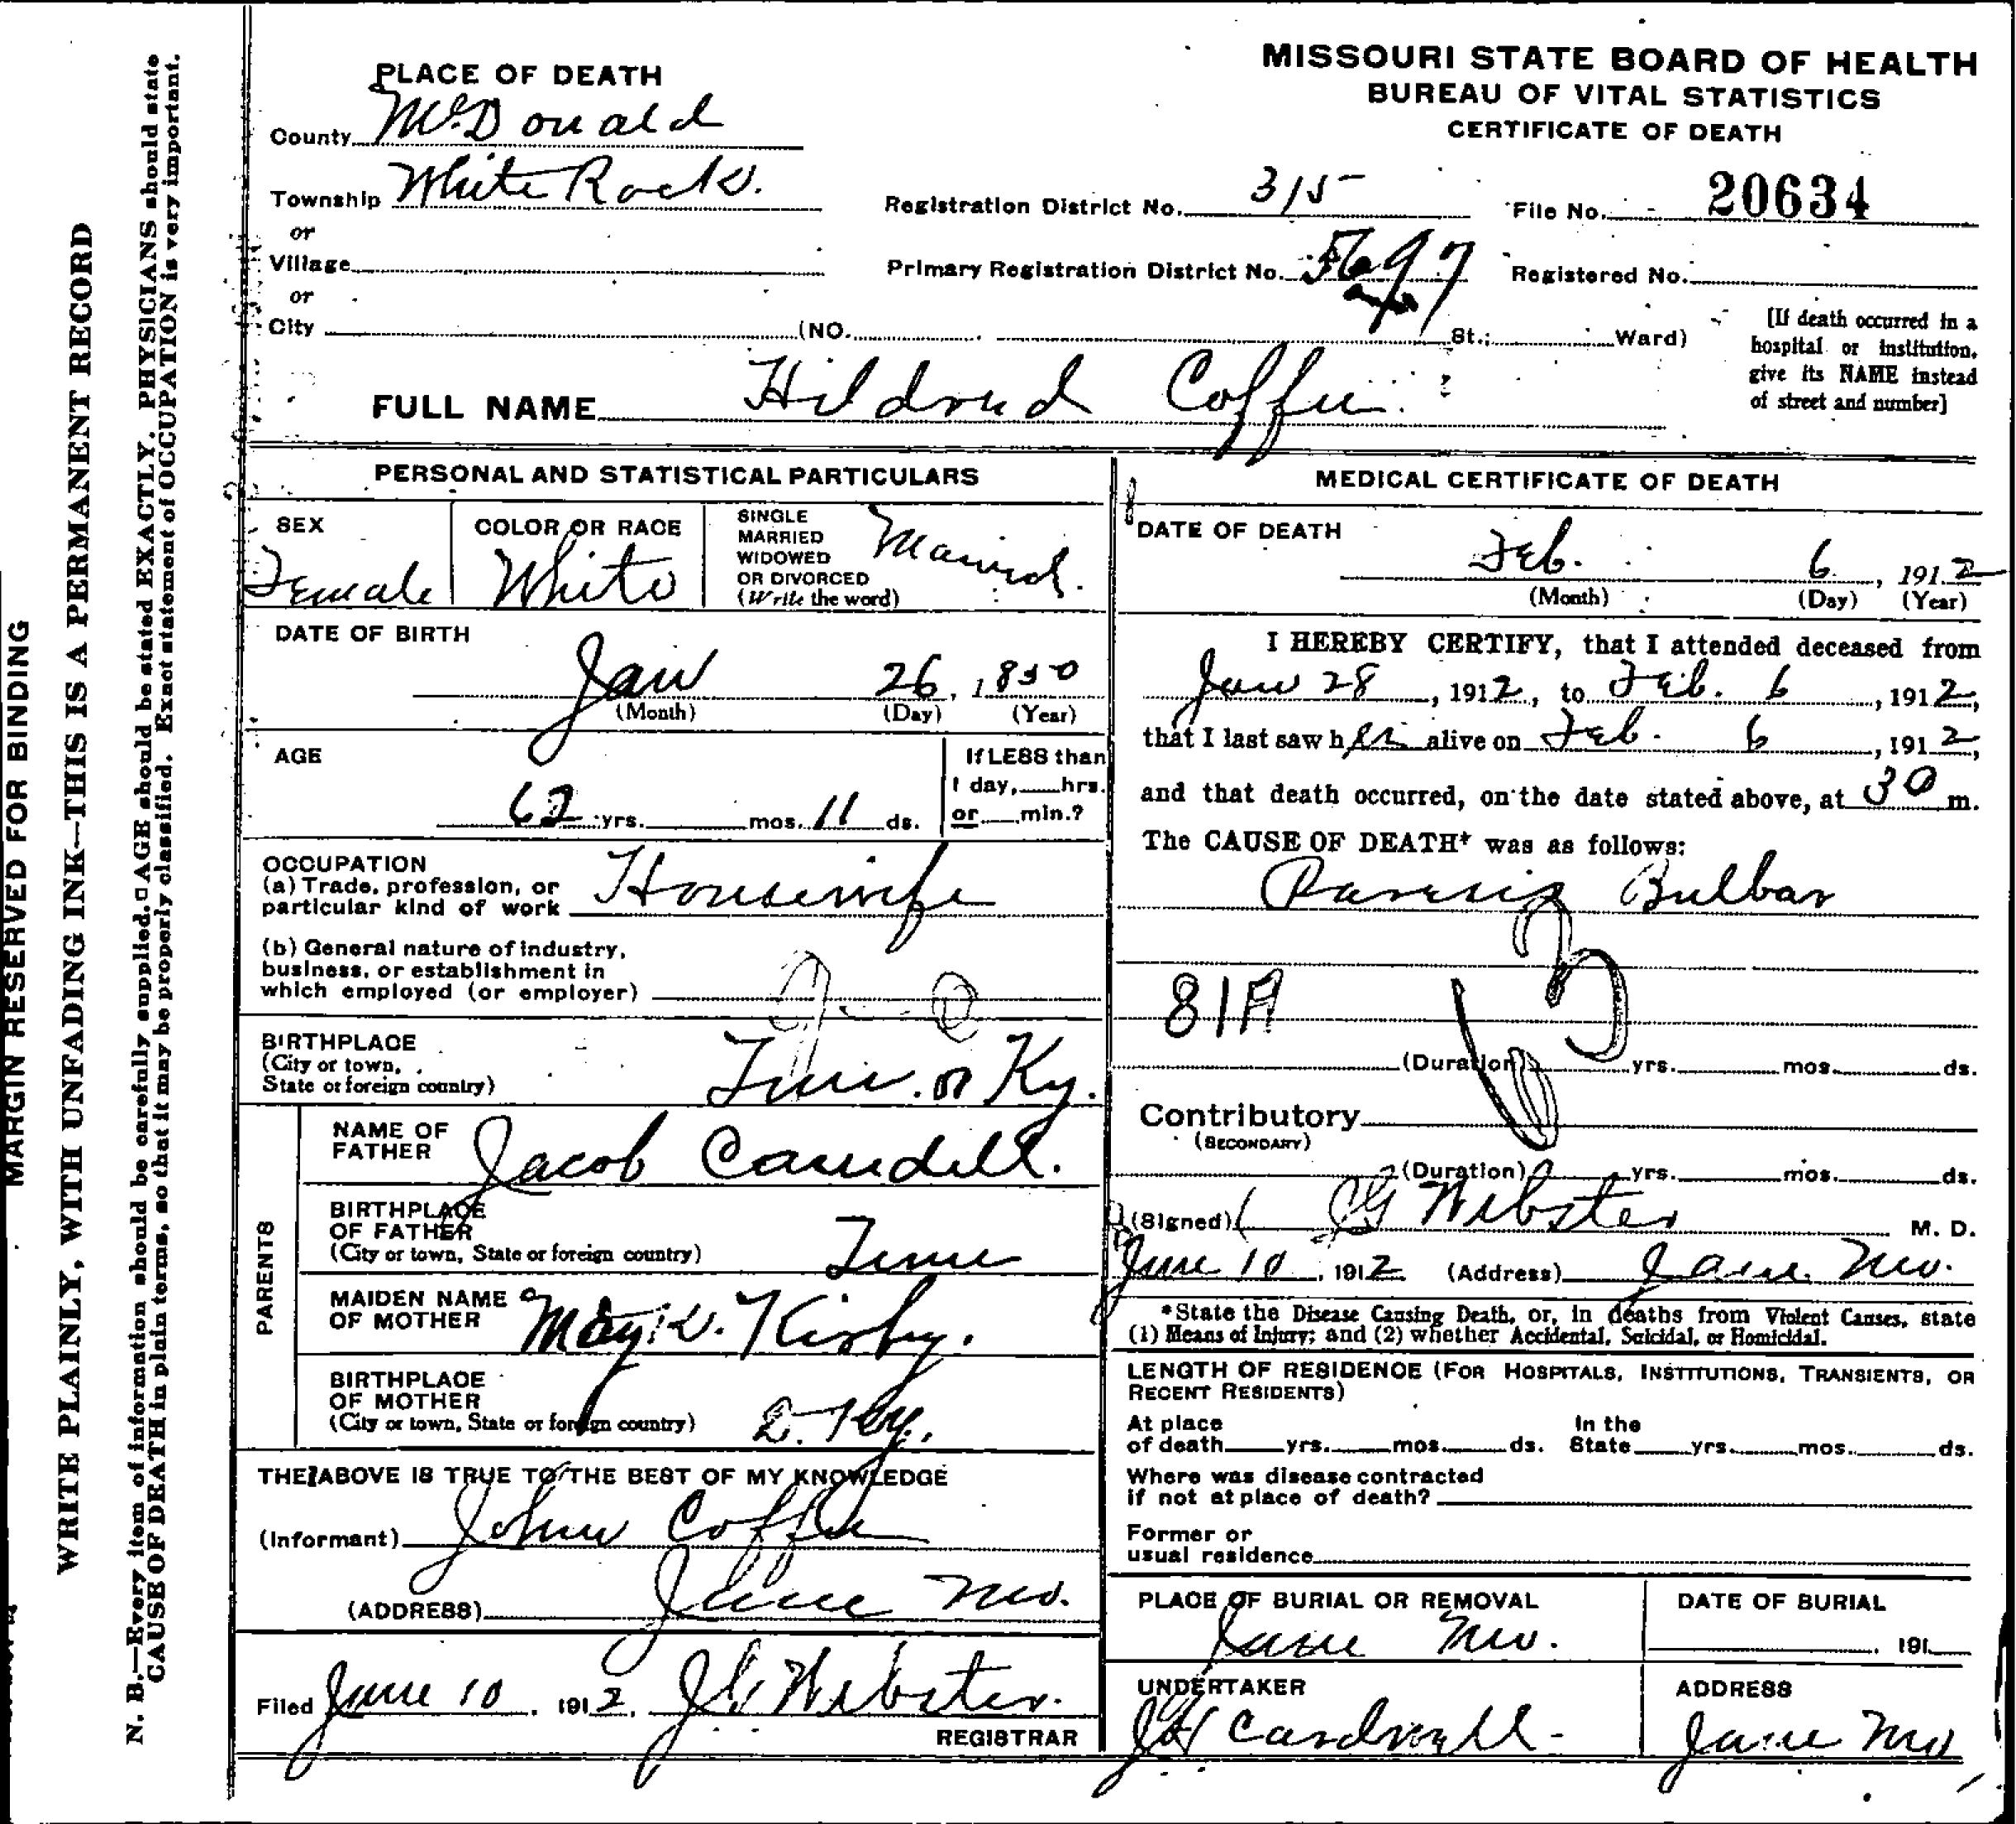 MISSOURI STATE BOARD OF HEALTH
BUREAU OF VITAL STATISTICS
CERTIFICATE OF DEATH
PLACE OF DEATH
County McDonald
Township White Rock.
or
Village
or
City (NO. St.; Ward)
Registration District No. 315
File No. 20634
Primary Registration District No. 5697
Registered No.
[If death occurred in a
hospital or institution,
give its NAME instead
of street and number]
FULL NAME Hildrud Coffee
PERSONAL AND STATISTICAL PARTICULARS
SEX
Female
COLOR OR RACE
White
SINGLE
MARRIED
WIDOWED
OR DIVORCED
(Write the word)
Married.
DATE OF BIRTH
Jan 26, 1850
(Month) (Day) (Year)
AGE
62 yrs. mos. 11 ds.
If LESS than
1 day, hrs.
or min.?
OCCUPATION
(a) Trade, profession, or
particular kind of work Housewife
(b) General nature of industry,
business, or establishment in
which employed (or employer)
BIRTHPLACE
(City or town,
State or foreign country) Tenn. or Ky.
PARENTS
NAME OF
FATHER Jacob
BIRTHPLACE
OF FATHER
(City or town, State or foreign country) Tenn
MAIDEN NAME
OF MOTHER Kirby.
BIRTHPLACE
OF MOTHER
(City or town, State or foreign country) Ky.
THE ABOVE IS TRUE TO THE BEST OF MY KNOWLEDGE
(Informant) John Coffee
(ADDRESS) Jane Mo.
Filed June 10, 1912, J.G. Webster.
REGISTRAR
MEDICAL CERTIFICATE OF DEATH
DATE OF DEATH
Feb. 6, 1912
(Month) (Day) (Year)
I HEREBY CERTIFY, that I attended deceased from
Jan 28, 1912, to Feb. 6, 1912,
that I last saw her alive on Feb. 6, 1912,
and that death occurred, on the date stated above, at m.
The CAUSE OF DEATH* was as follows:
Paresis Bulbar
81A
(Duration) yrs. mos. ds.
Contributory
(SECONDARY)
(Duration) yrs. mos. ds.
(Signed) Webster M. D.
June 10, 1912 (Address) Jane Mo.
*State the Disease Causing Death, or, in deaths from Violent Causes, state
(1) Means of Injury; and (2) whether Accidental, Suicidal, or Homicidal.
LENGTH OF RESIDENCE (FOR HOSPITALS, INSTITUTIONS, TRANSIENTS, OR
RECENT RESIDENTS)
At place
of death yrs. mos. ds.
In the
State yrs. mos. ds.
Where was disease contracted
if not at place of death?
Former or
usual residence
PLACE OF BURIAL OR REMOVAL
Jane Mo.
DATE OF BURIAL
, 191
UNDERTAKER
Cardwell
ADDRESS
Jane Mo
MARGIN RESERVED FOR BINDING
WRITE PLAINLY, WITH UNFADING INK—THIS IS A PERMANENT RECORD
N. B.—Every item of information should be carefully supplied. AGE should be stated EXACTLY. PHYSICIANS should state
CAUSE OF DEATH in plain terms, so that it may be properly classified. Exact statement of OCCUPATION is very important.